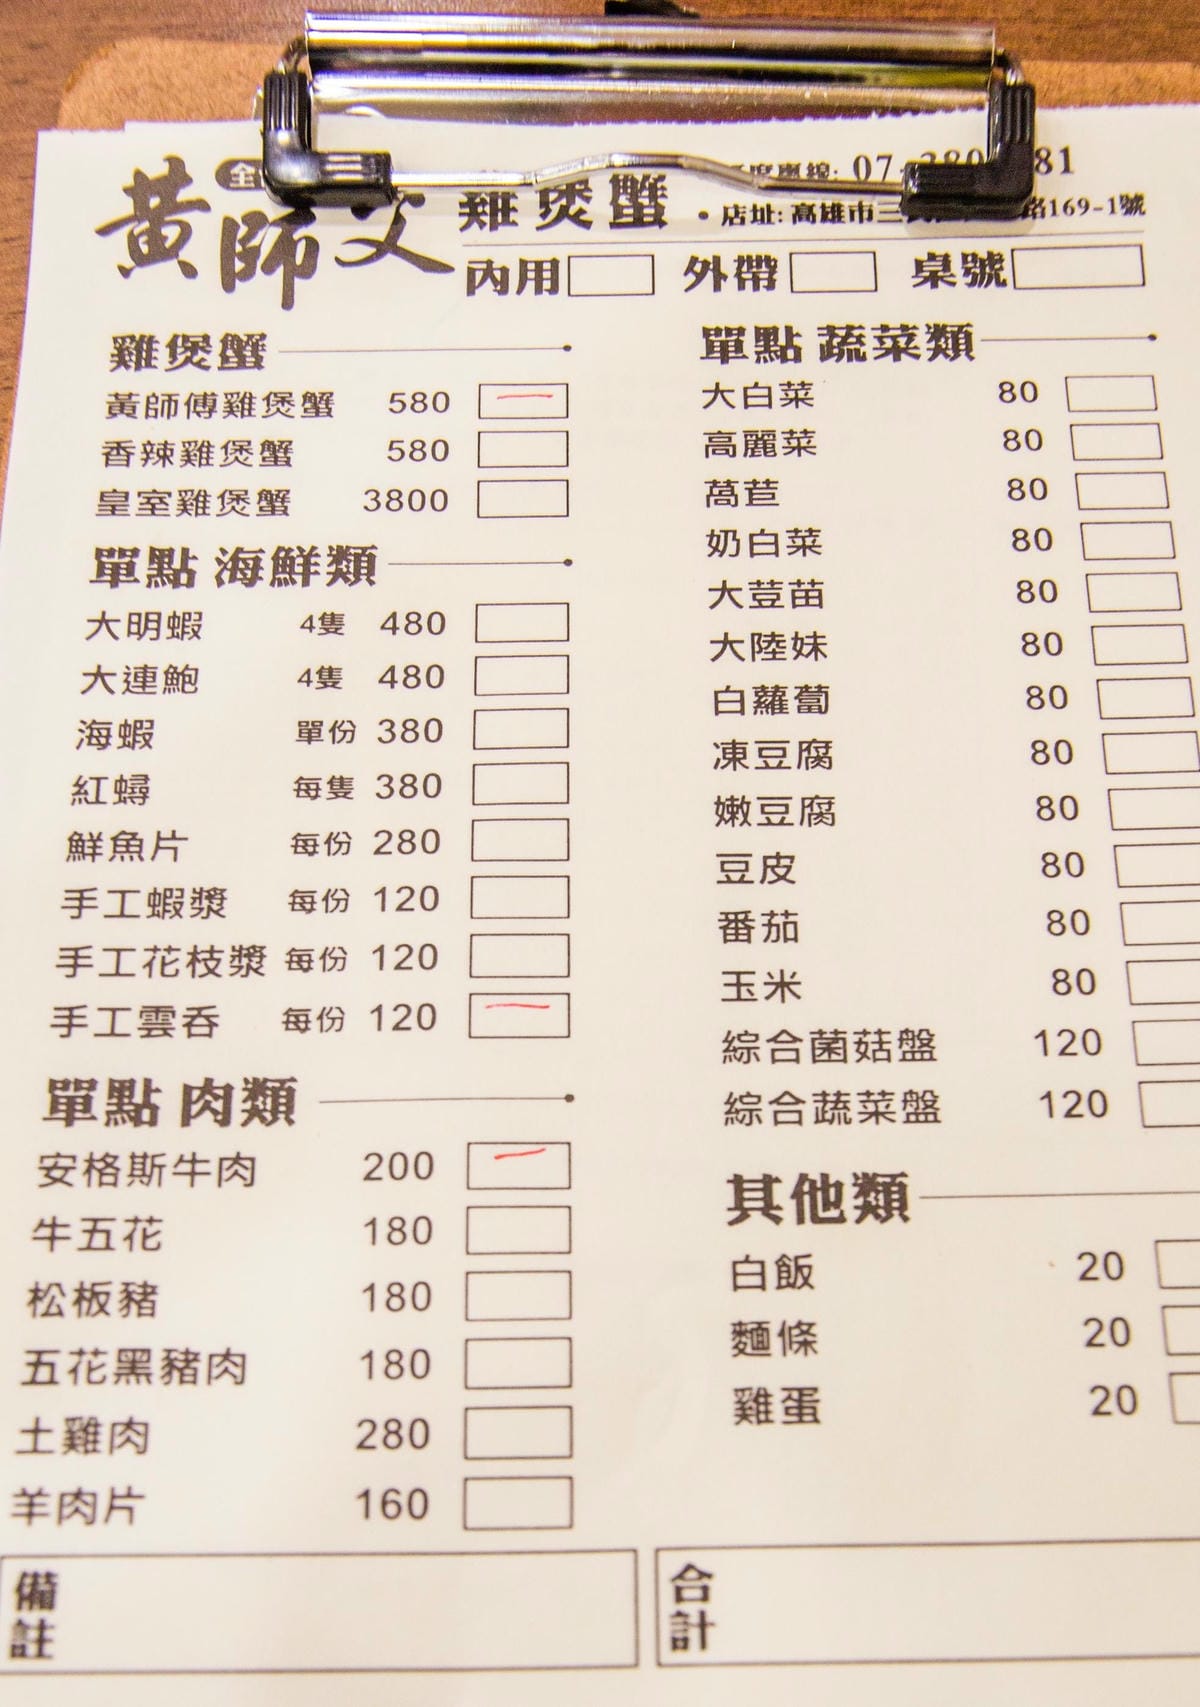 黃師父 雞煲蟹
07-380 81
• 店址: 高雄市三 路169-1號
內用 外帶 桌號
雞煲蟹
黃師傅雞煲蟹 580
香辣雞煲蟹 580
皇室雞煲蟹 3800
單點 海鮮類
大明蝦 4隻 480
大連鮑 4隻 480
海蝦 單份 380
紅蟳 每隻 380
鮮魚片 每份 280
手工蝦漿 每份 120
手工花枝漿 每份 120
手工雲吞 每份 120
單點 肉類
安格斯牛肉 200
牛五花 180
松板豬 180
五花黑豬肉 180
土雞肉 280
羊肉片 160
單點 蔬菜類
大白菜 80
高麗菜 80
萵苣 80
奶白菜 80
大荳苗 80
大陸妹 80
白蘿蔔 80
凍豆腐 80
嫩豆腐 80
豆皮 80
番茄 80
玉米 80
綜合菌菇盤 120
綜合蔬菜盤 120
其他類
白飯 20
麵條 20
雞蛋 20
備註
合計